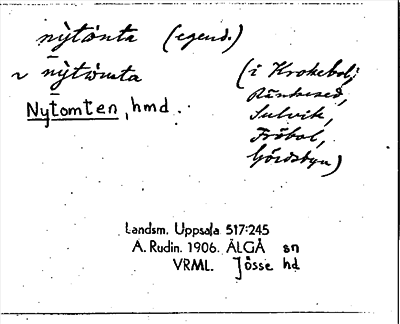 nỳtònta (egend.)
~ nỳtòmta (i Krokebol,
Ränkesed,
Nytomten, hmd.
Sulvik,
Fröbol,
Gördsbyn)
Landsm. Uppsala 517:245
A. Rudin. 1906. ÄLGÅ sn
VRML. Jösse hd